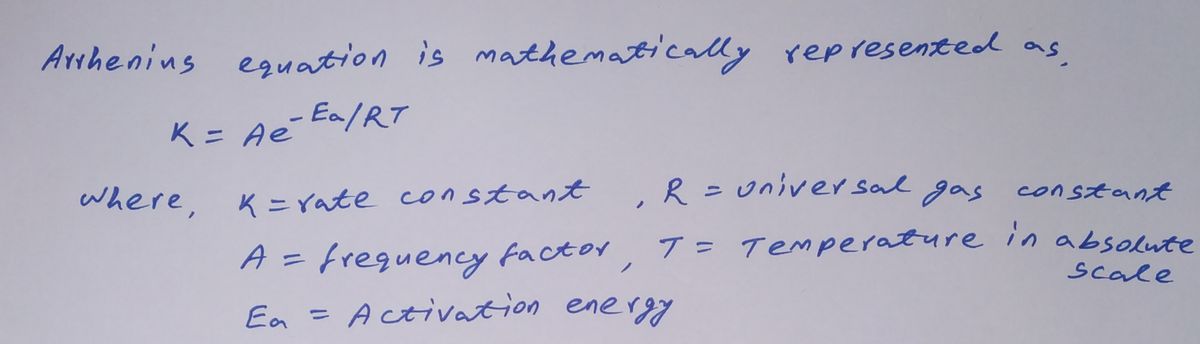 Arrhenius equation is mathematically represented as,
K = Ae^-Ea/RT
where, K = rate constant , R = universal gas constant
A = frequency factor , T = Temperature in absolute
scale
Ea = Activation energy